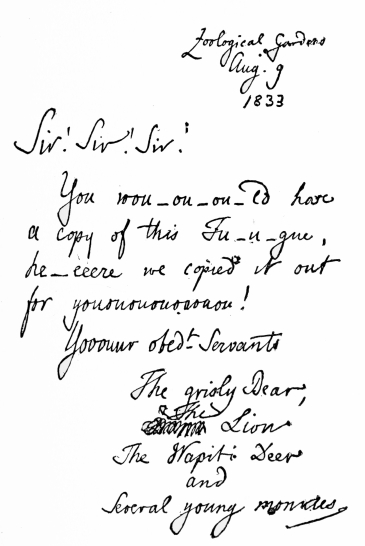 Zoological Gardens
Aug. 9
1833
Sir! Sir! Sir!
You wou_ou_ou_ld have
a copy of this Fu_u_gue,
he_eeere we copied it out
for yououououououou!
Yooouur obed.t Servants
The grisly Bear,
The
Lion
The Wapiti Deer
and
Several young monkies